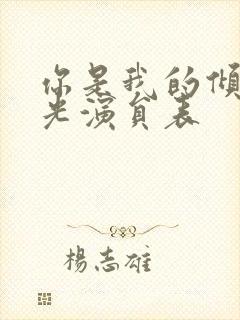 你是我的倾
光演員表
楊志雄